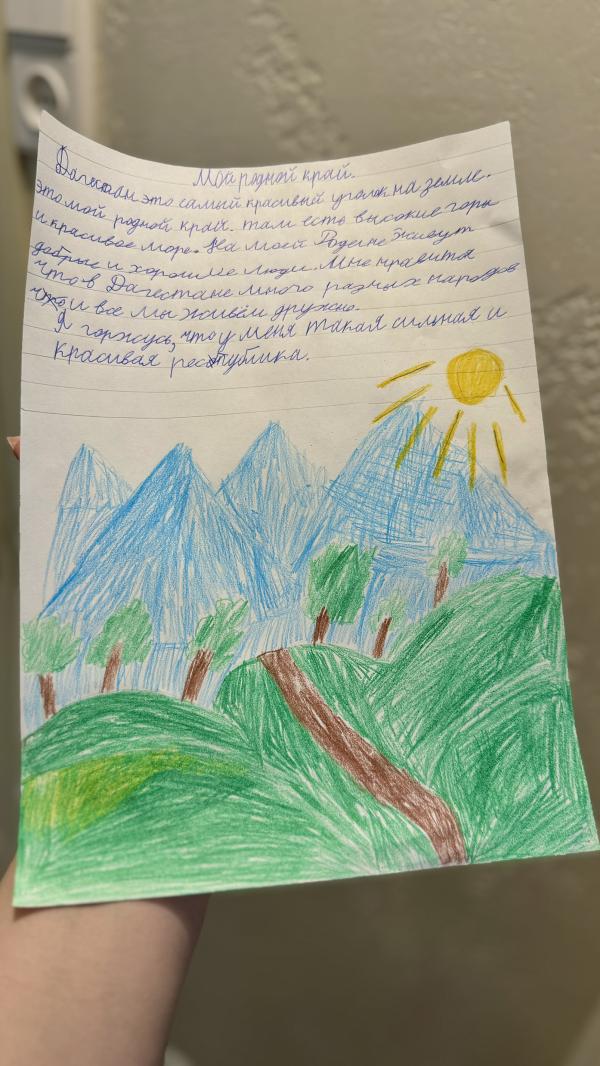 Мой родной край.
Дагестан это самый красивый уголок на земле.
это мой родной край. там есть высокие горы
и красивое море. На моей Родине живут
добрые и хорошие люди. Мне нравится
что в Дагестане много разных народов
что и все мы живём дружно.
Я горжусь, что у меня такая сильная и
красивая республика.